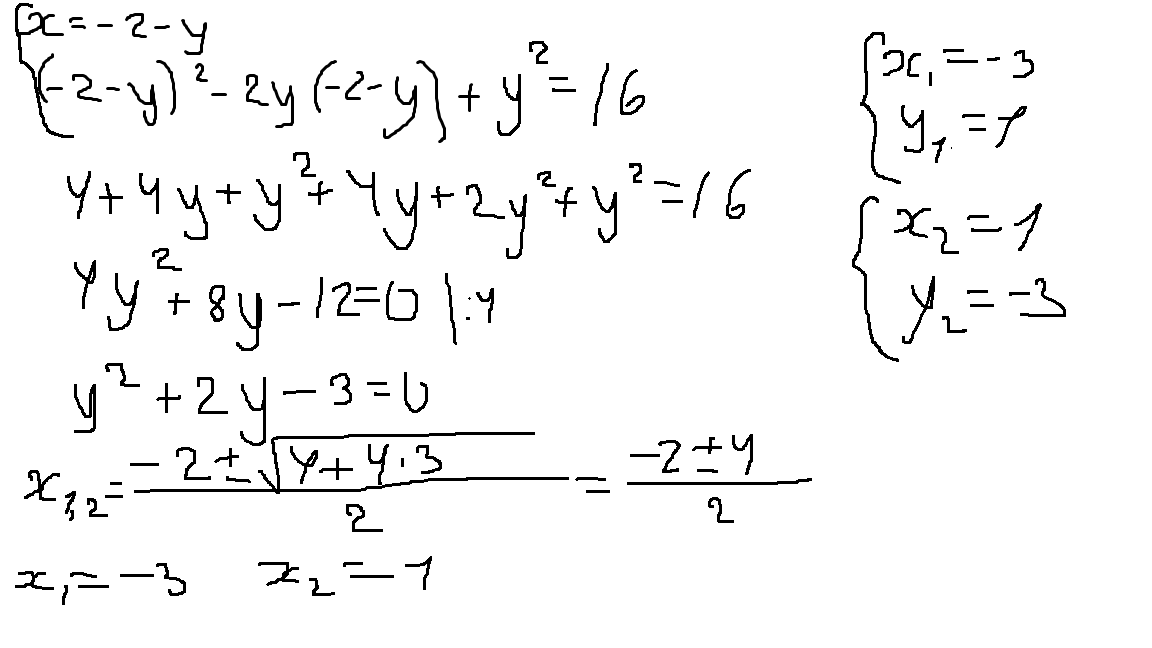 {x = -2 - y
(-2-y)² - 2y(-2-y) + y² = 16
4 + 4y + y² + 4y + 2y² + y² = 16
4y² + 8y - 12 = 0 |:4
y² + 2y - 3 = 0
x₁,₂ = (-2 ± √(4+4·3))/2 = (-2 ± 4)/2
x₁ = -3 x₂ = 1
{x₁ = -3
y₁ = 1
{x₂ = 1
y₂ = -3